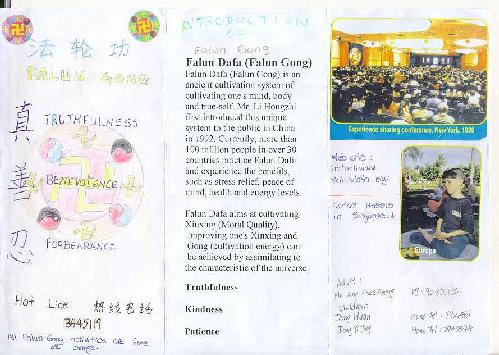 法轮功
FALUN GONG
真
善
忍
TRUTHFULNESS
BENEVOLENCE
FORBEARANCE
Hot Line
All Falun Gong activities are free
of charge.
INTRODUCTION
OF
Falun Gong
Falun Dafa (Falun Gong)
Falun Dafa (Falun Gong) is an
ancient cultivation system of
cultivating one's mind, body
and true-self. Mr. Li Hongzhi
first introduced this unique
system to the public in China
in 1992. Currently, more than
100 million people in over 30
countries practice Falun Dafa
and experience the benefits,
such as stress relief, peace of
mind, health and energy levels.
Falun Dafa aims at cultivating
Xinxing (Moral Quality).
Improving one's Xinxing and
Gong (cultivation energy) can
be achieved by assimilating to
the characteristic of the universe
Truthfulness
Kindness
Patience
Experience sharing conference, New York, 1998
Web site:
Contact Persons
in Singapore:
Europe
Adult:
Children: